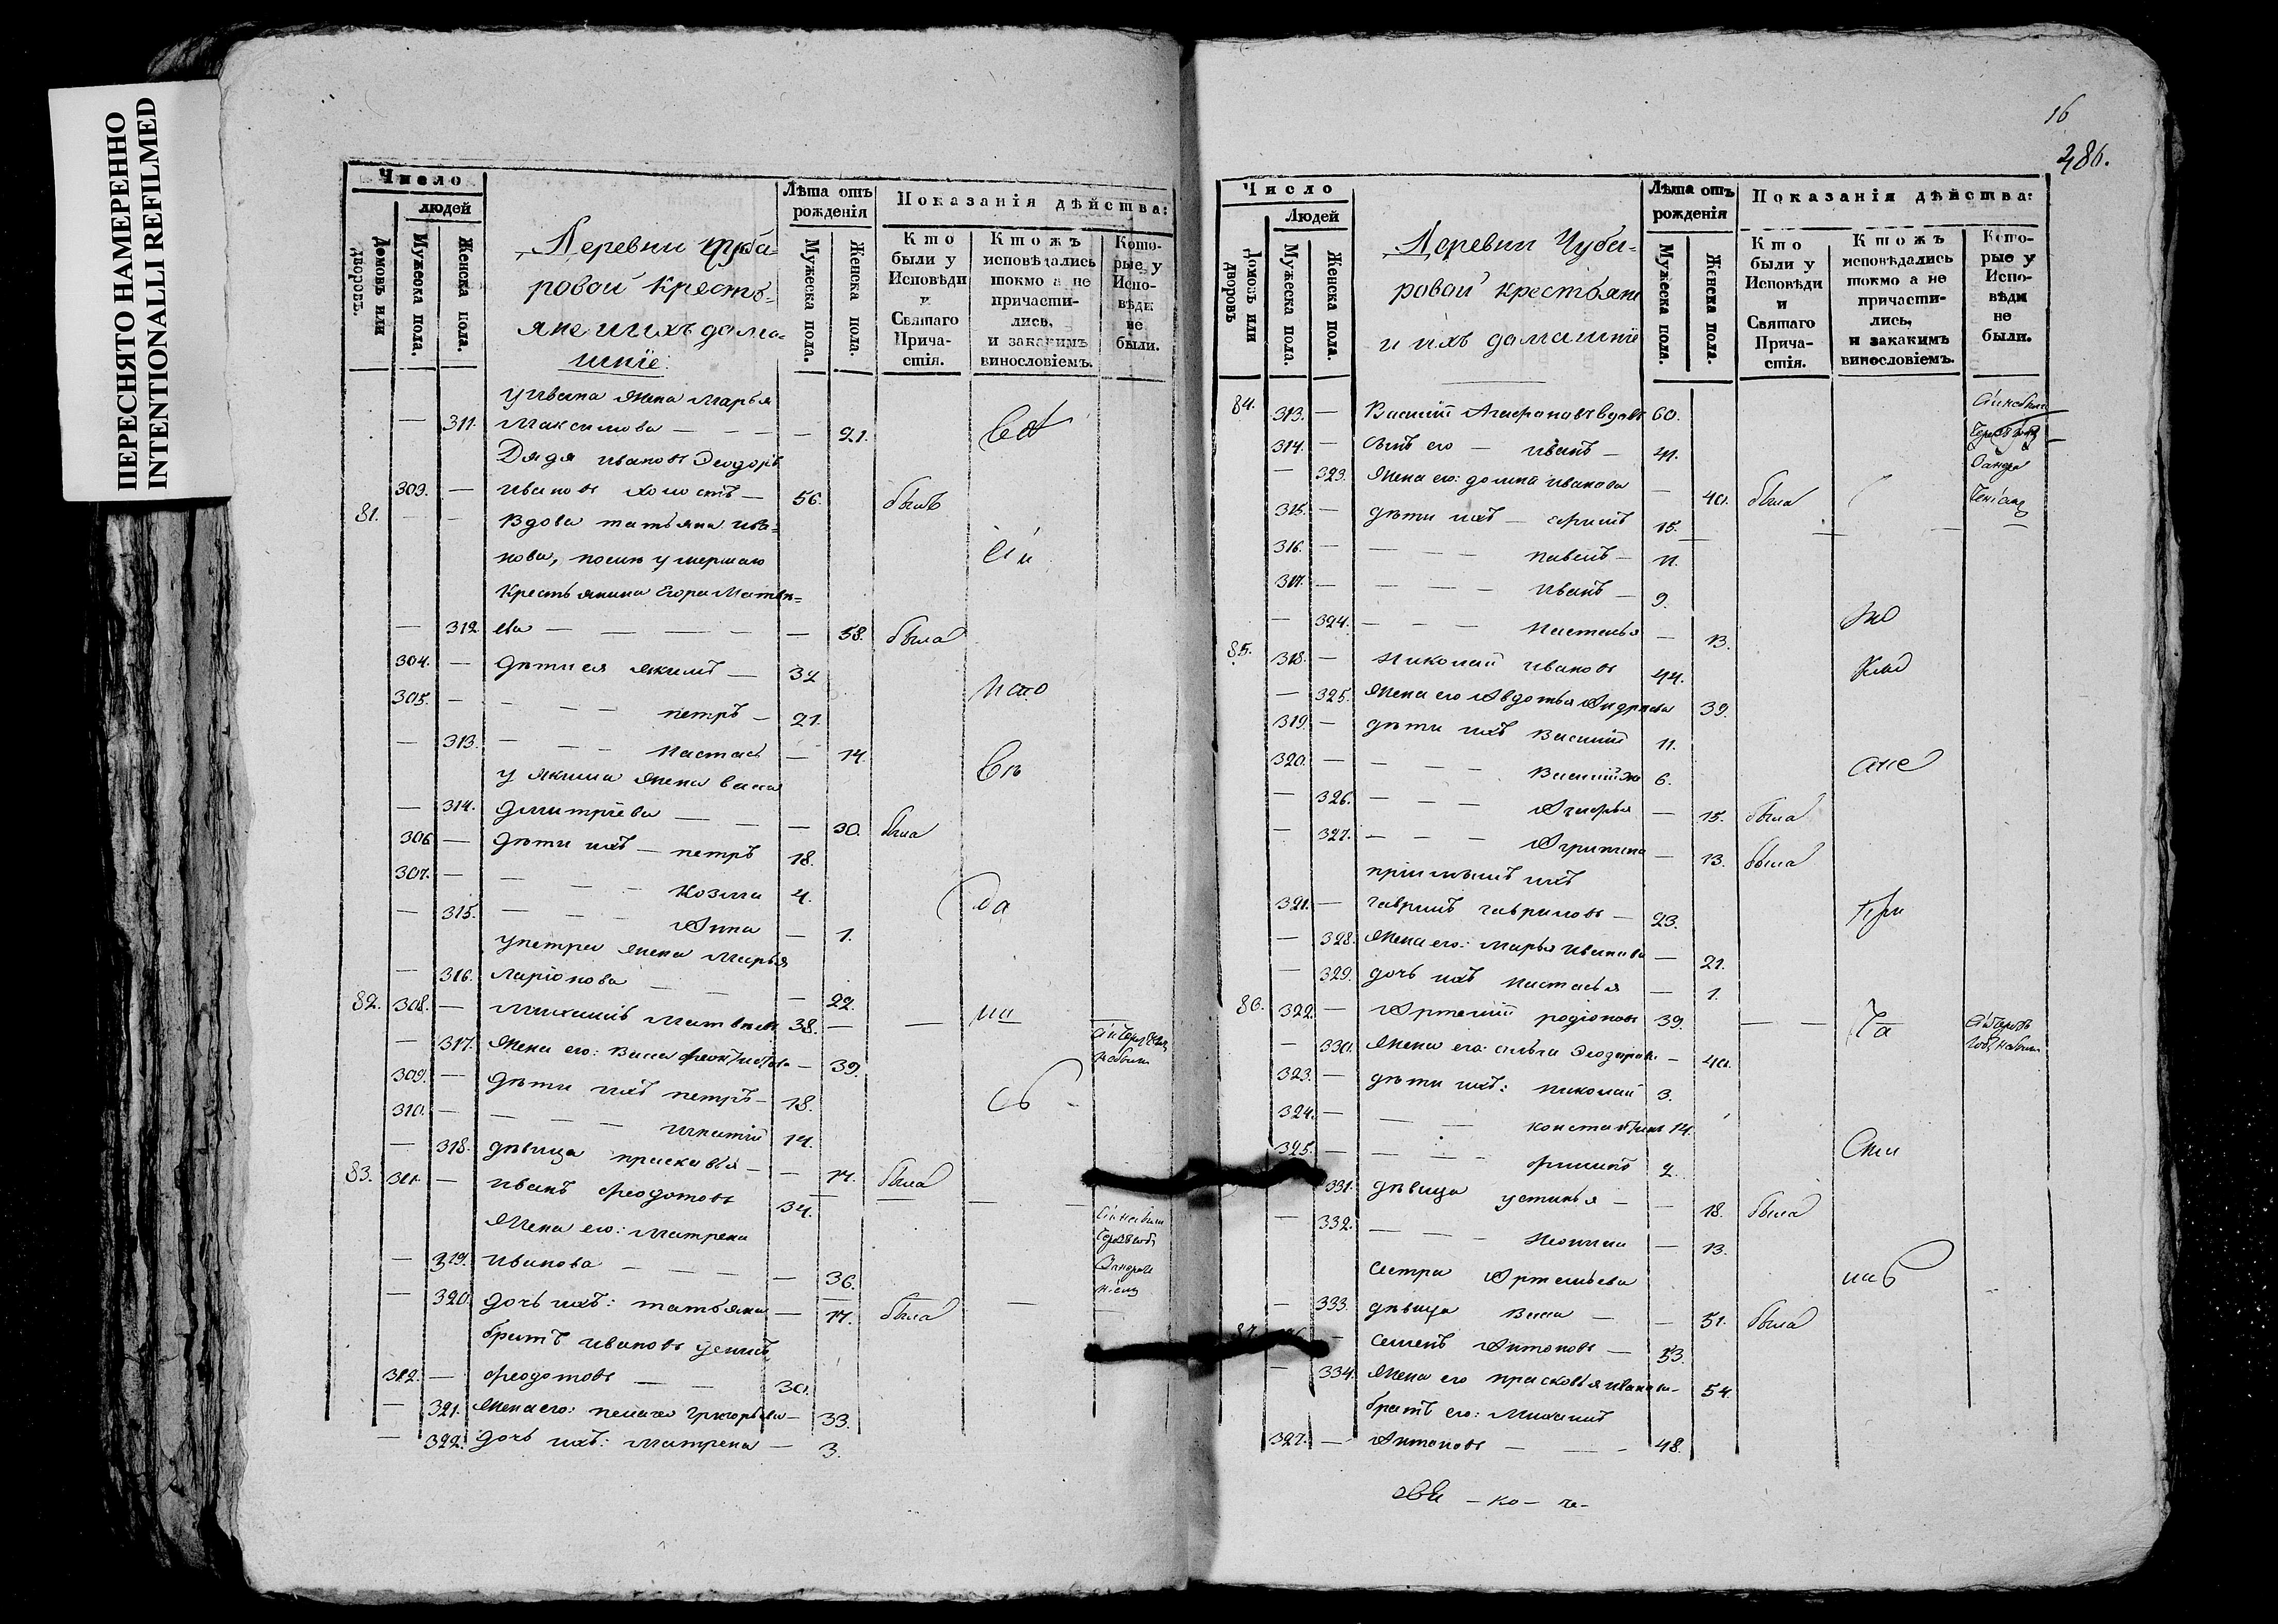 ПЕРЕСНЯТО НАМЕРЕННО
INTENTIONALLI REFILMED
Число
людей
Домовъ или дворовъ.
Мужеска пола.
Женска пола.
Деревни Чуба-
ровой кресть-
яне и ихъ дома-
шніе.
Лѣта отъ рожденія
Мужеска пола.
Женска пола.
Показанія дѣйства:
Кто были у Исповѣди и Святаго Причастія.
Ктожъ исповѣдались токмо а не причастились, и закакимъ винословіемъ.
Которые у Исповѣди не были.
у ивана жена марья
— 311. Максимова — — — 21.
Дядя ивановъ Ѳеодоръ
309. — ивановъ холостъ — 56. былъ
81. — — Вдова татьяна ива-
нова, послѣ умершаго
Крестьянина Егора Матвѣ-
— 312 ева — — — — — 58. была
304. — Дѣти ея якимъ — 32
305. — — — — петръ — 21.
— 313. — — — Настась — 14.
у якима жена васса
— 314. Дмитріева — — — 30. была
306 — Дѣти ихъ — петръ 18.
307. — — — — Козма 4.
— 315. — — — Анна — 1.
у петра жена марья
— 316. Ларіонова — — — 22.
82. 308. — Михаилъ Матвѣевъ 38. — —
— 317. Жена его: Васса — 39.
309. — Дѣти ихъ петръ — 18.
310. — — — — игнатій 14.
— 318. дѣвица прасковья — — 17. была
83. 311. — иванъ Ѳеодотовъ 34.
Жена его: Матрена
— 319. иванова — — — — — 36.
— 320. дочь ихъ: татьяна — 17. была
братъ ивановъ
312. — Ѳеодотовъ — — 30.
— 321. Жена его: пелагея григорьева — 33.
— 322. дочь ихъ: Матрена — 3.
16
286.
Число
Людей
Домовъ или дворовъ
Мужеска пола.
Женска пола.
Деревни Чуба-
ровой крестьяне
и ихъ домашніе
Лѣта отъ рожденія
Мужеска пола.
Женска пола.
Показанія дѣйства:
Кто были у Исповѣди и Святаго Причастія.
Ктожъ исповѣдались токмо а не причастились, и закакимъ винословіемъ.
Которые у Исповѣди не были.
84. 313. — Василій вдовъ 60.
314. — сынъ его — иванъ — 41.
— 323. Жена его: домна иванова — 40. была
315. — дѣти ихъ — 15.
316. — — — — павелъ — 11.
317. — — — — иванъ — 9.
— 324. — — — Настасья — 13.
85. 318. — Николай ивановъ 44.
— 325. Жена его Авдотья Андреева 39.
319. — дѣти ихъ Василій 11.
320. — — — — Василій же 6.
— 326. — — — — 15. была
— 327. — — — Агрипена — 13. была
пріимышъ ихъ
321. — гаврилъ гавриловъ — 23.
— 328. Жена его: марья иванова — 21.
— 329. дочь ихъ настасья — 1.
86. 322. — Артемій родіоновъ 39. — —
— 330. Жена его: Ѳеодорова — 40.
323. — дѣти ихъ: николай 3.
324. — — — константинъ 14.
325. — — — — филипъ 2.
331. дѣвица устинья — — 18. была
— 332. — — — Неонила — 13.
сестра Артемьева
— 333. дѣвица Васса — — 31. была
87. — семенъ Антоновъ — 53.
— 334. Жена его прасковья иванова — 54.
братъ его: Михаилъ
327. — Антоновъ — — — 48.
— ко — че —